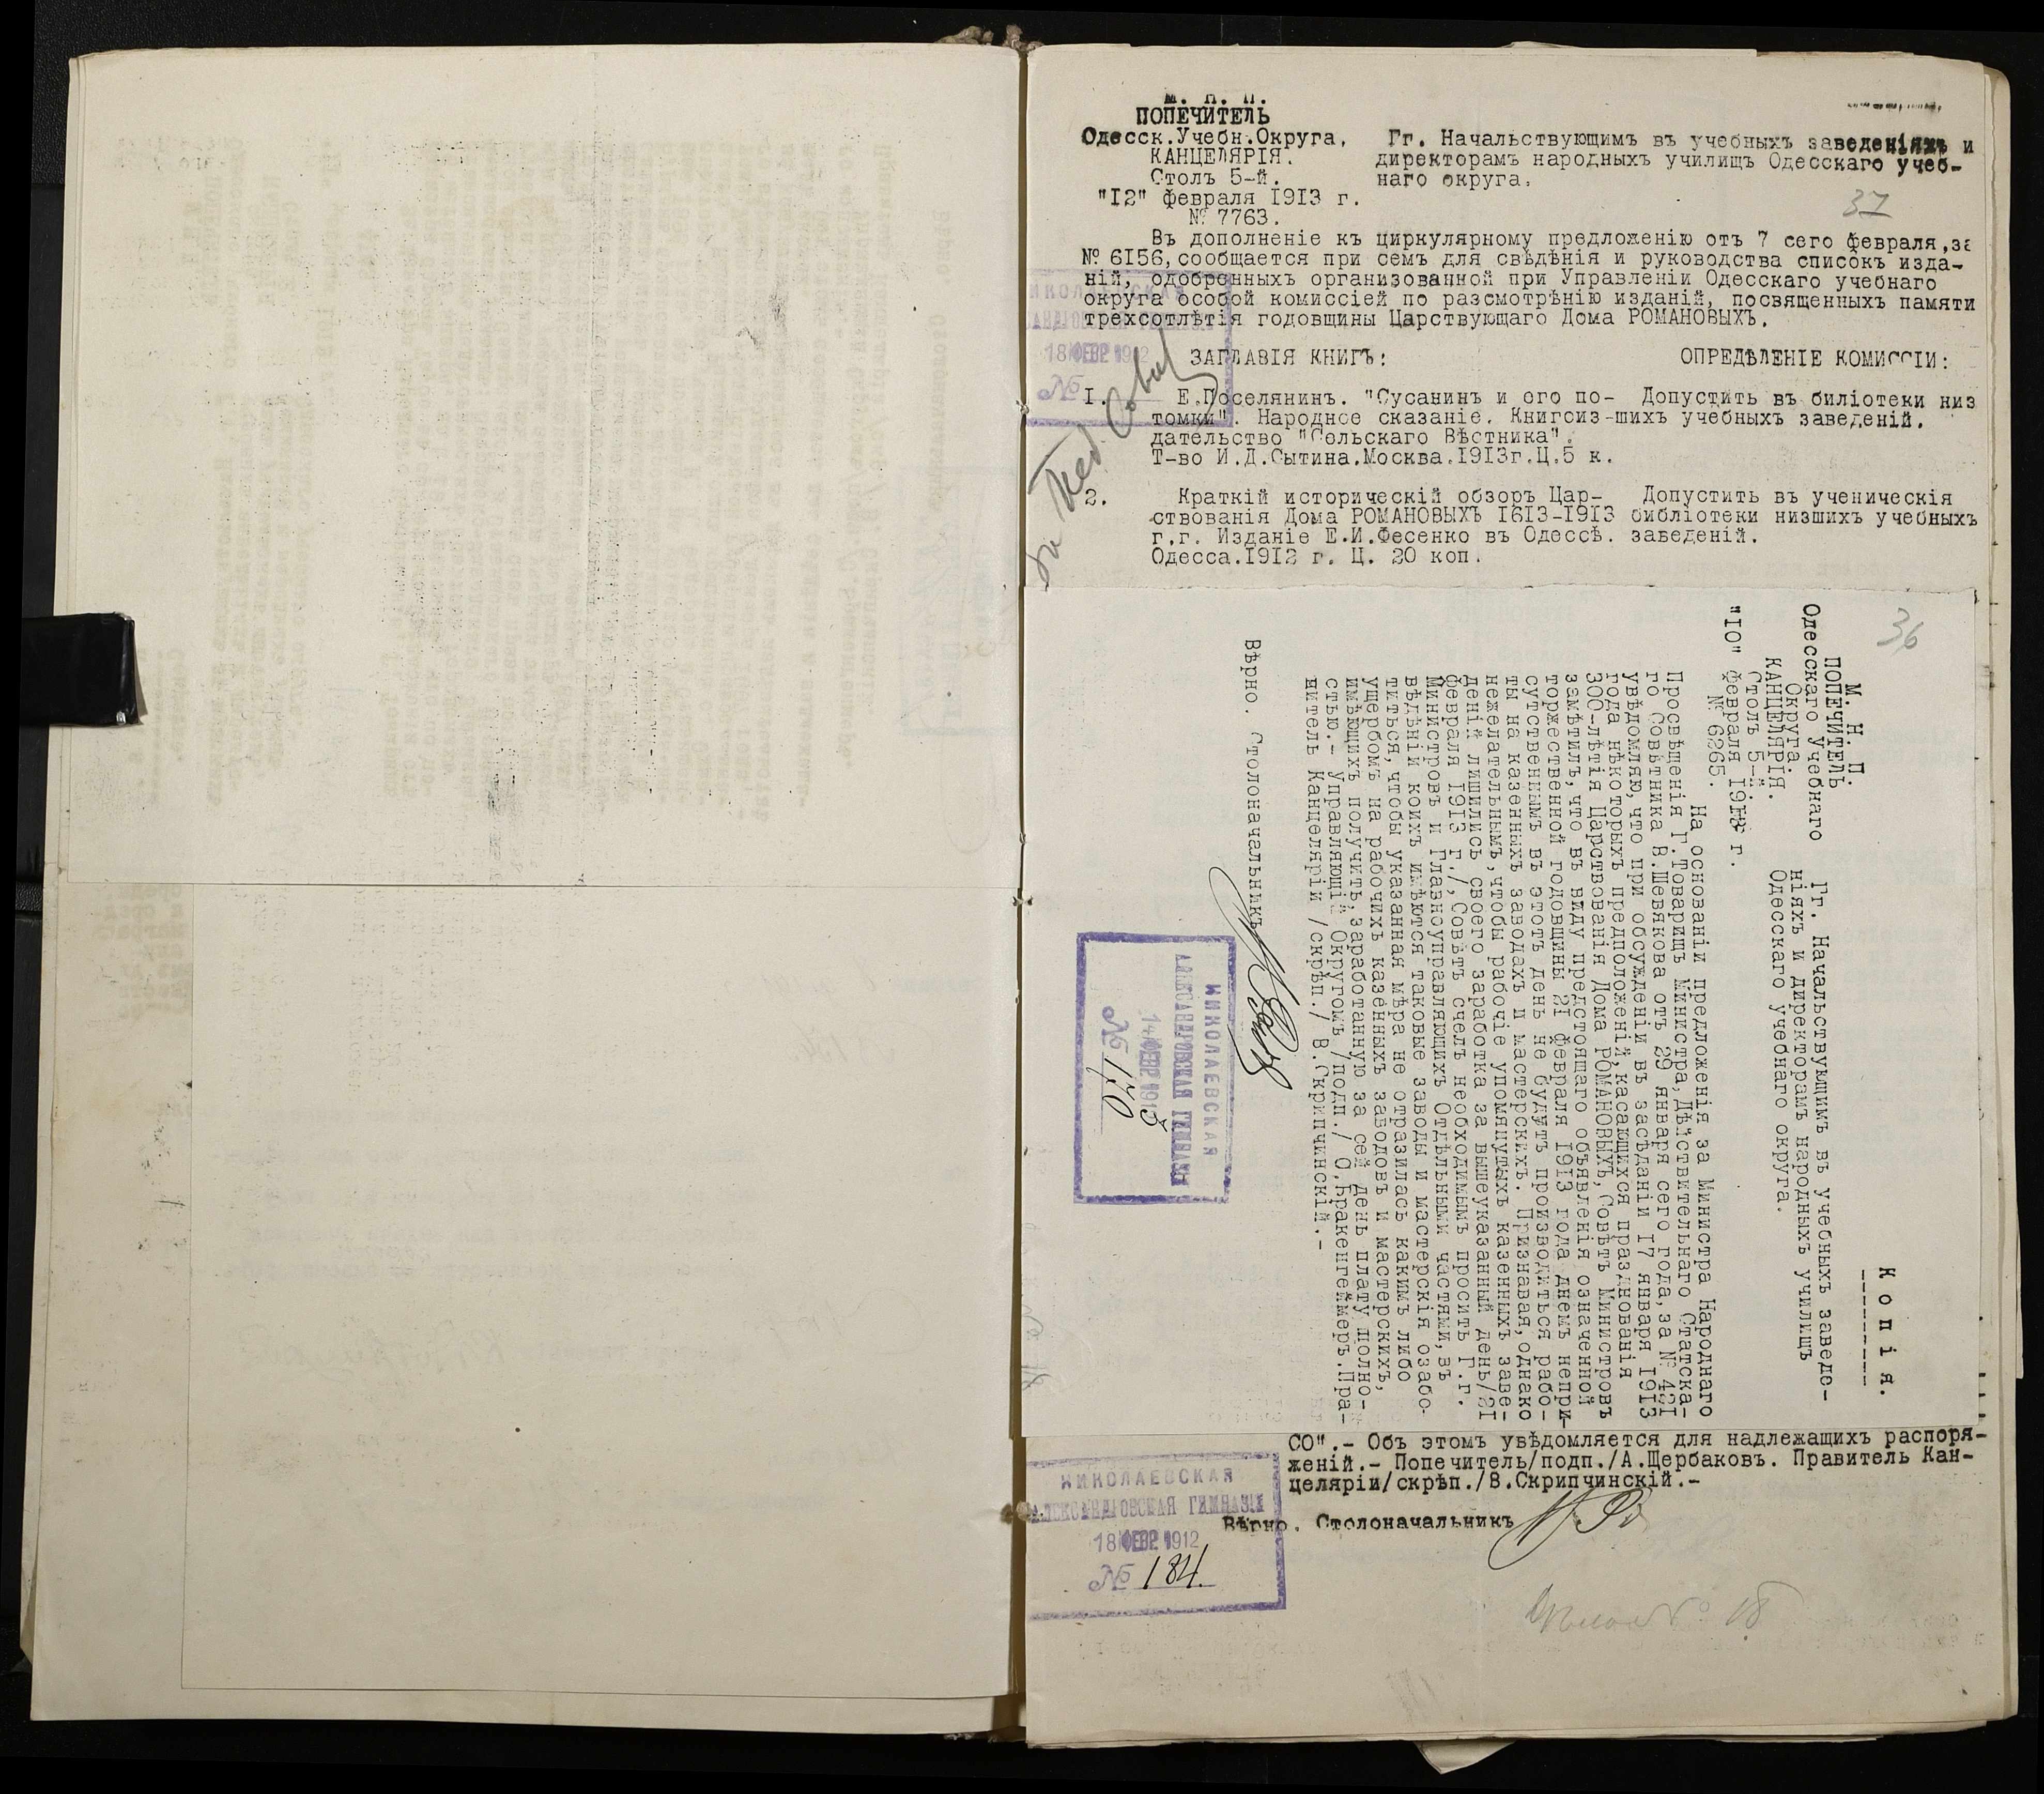 М. Н. П.
ПОПЕЧИТЕЛЬ
Одесск.Учебн.Округа,
КАНЦЕЛЯРІЯ.
Столъ 5-й.
"12" февраля 1913 г.
№ 7763.
Гг. Начальствующимъ въ учебныхъ заведеніяхъ и
директорамъ народныхъ училищъ Одесскаго учеб-
наго округа.
37
Въ дополненіе къ циркулярному предложенію отъ 7 сего февраля,за
№ 6156,сообщается при семъ для свѣдѣнія и руководства списокъ изда-
ній, одобренныхъ организованной при Управленіи Одесскаго учебнаго
округа особой комиссіей по разсмотрѣнію изданій, посвященныхъ памяти
трехсотлѣтія годовщины Царствующаго Дома РОМАНОВЫХЪ.
НИКОЛАЕВСКАЯ
18 ФЕВР 1912
№
ЗАГЛАВІЯ КНИГЪ: ОПРЕДѢЛЕНІЕ КОМИССІИ:
1. Е.Поселянинъ. "Сусанинъ и его по- Допустить въ биліотеки низ
томки". Народное сказаніе. Книгоиз-шихъ учебныхъ заведеній.
дательство "Сельскаго Вѣстника".
Т-во И.Д.Сытина.Москва.1913г.Ц.5 к.
2. Краткій историческій обзоръ Цар- Допустить въ ученическія
ствованія Дома РОМАНОВЫХЪ 1613-1913 библіотеки низшихъ учебныхъ
г.г. Изданіе Е.И.Фесенко въ Одессѣ. заведеній.
Одесса.1912 г. Ц. 20 коп.
36
Копія.
М. Н. П.
ПОПЕЧИТЕЛЬ
Одесскаго Учебнаго
Округа.
КАНЦЕЛЯРІЯ.
Столъ 5-й
"10" февраля 1913 г.
№ 6265.
Гг. Начальствующимъ въ учебныхъ заведе-
ніяхъ и директорамъ народныхъ училищъ
Одесскаго учебнаго округа.
На основаніи предложенія за Министра Народнаго
Просвѣщенія Г.Товарищъ Министра,Дѣйствительнаго Статска-
го Совѣтника В.Шевякова отъ 29 января сего года,за № 421
увѣдомляю,что при обсужденіи въ засѣданіи 17 января 1913
года нѣкоторыхъ предположеній,касающихся празднованія
300-лѣтія Царствованія Дома РОМАНОВЫХЪ,Совѣтъ Министровъ
замѣтилъ,что въ виду предстоящаго объявленія означенной
торжественной годовщины 21 февраля 1913 года днемъ непри-
сутственнымъ въ этотъ день не будутъ производиться рабо-
ты на казенныхъ заводахъ и мастерскихъ. Признавая,однако
нежелательнымъ,чтобы рабочіе упомянутыхъ казенныхъ заве-
деній лишились своего заработка за вышеуказанный день/21
февраля 1913 г./,Совѣтъ счелъ необходимымъ просить Г.г.
Министровъ и Главноуправляющихъ Отдѣльными частями,въ
вѣдѣніи коихъ имѣются таковые заводы и мастерскія озабо-
титься,чтобы указанная мѣра не отразилась какимъ либо
ущербомъ на рабочихъ казенныхъ заводовъ и мастерскихъ,
имѣющихъ получить,заработанную за сей день плату полно-
стью.- Управляющій Округомъ /подп./ О.Бракенгеймеръ.Пра-
витель Канцеляріи /скрѣп./ В.Скрипчинскій.-
Вѣрно. Столоначальникъ
НИКОЛАЕВСКАЯ
АЛЕКСАНДРОВСКАЯ ГИМНАЗІЯ
14 ФЕВР 1913
№ 170
СО".- Объ этомъ увѣдомляется для надлежащихъ распоря-
женій.- Попечитель/подп./А.Щербаковъ. Правитель Кан-
целяріи/скрѣп./В.Скрипчинскій.-
Вѣрно. Столоначальникъ
НИКОЛАЕВСКАЯ
АЛЕКСАНДРОВСКАЯ ГИМНАЗІЯ
18 ФЕВР 1912
№ 184.
№ 18